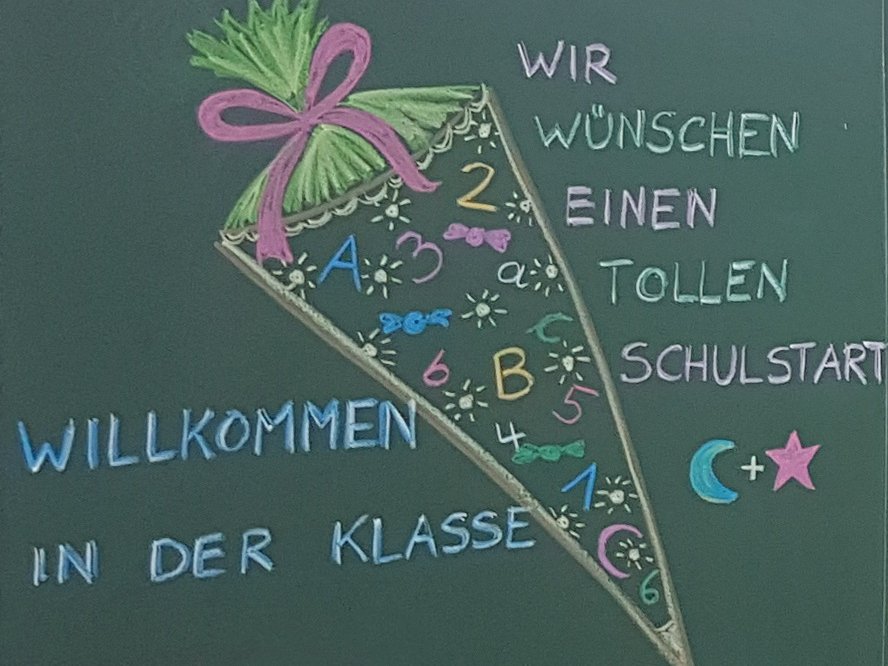 WIR
WÜNSCHEN
EINEN
TOLLEN
SCHULSTART
2
A 3
a
c
6 B
5
4
1
C
6
WILLKOMMEN
IN DER KLASSE
+